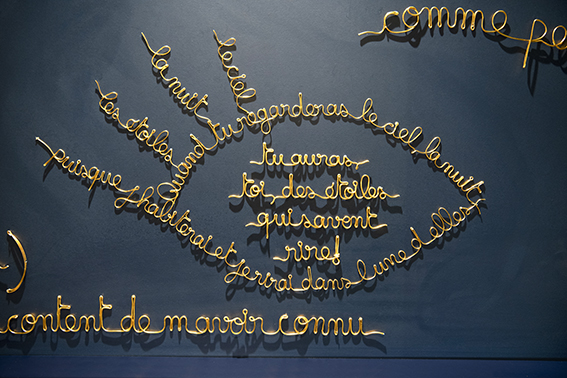 comme pe
le ciel
la nuit
les étoiles
quand tu regarderas le ciel la nuit
tu auras,
toi, des étoiles
qui savent
rire!
puisque jhabiterai et je rirai dans lune delles
content de mavoir connu